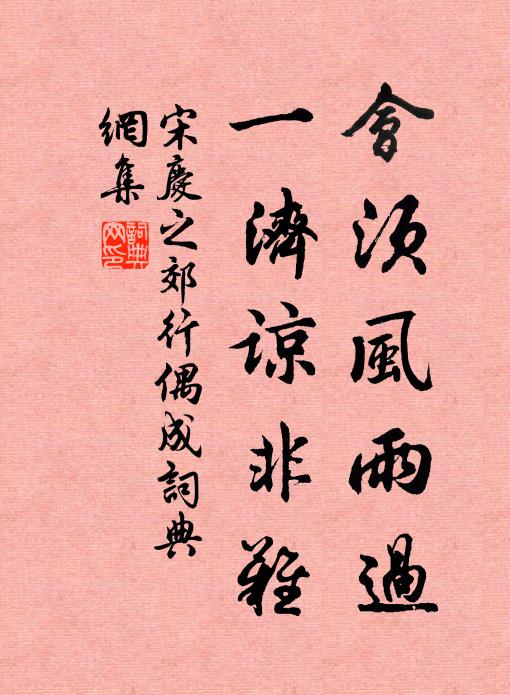 會須風雨過
一濟諒非難
宋慶之郊行偶成詞典
網集
詞典網印